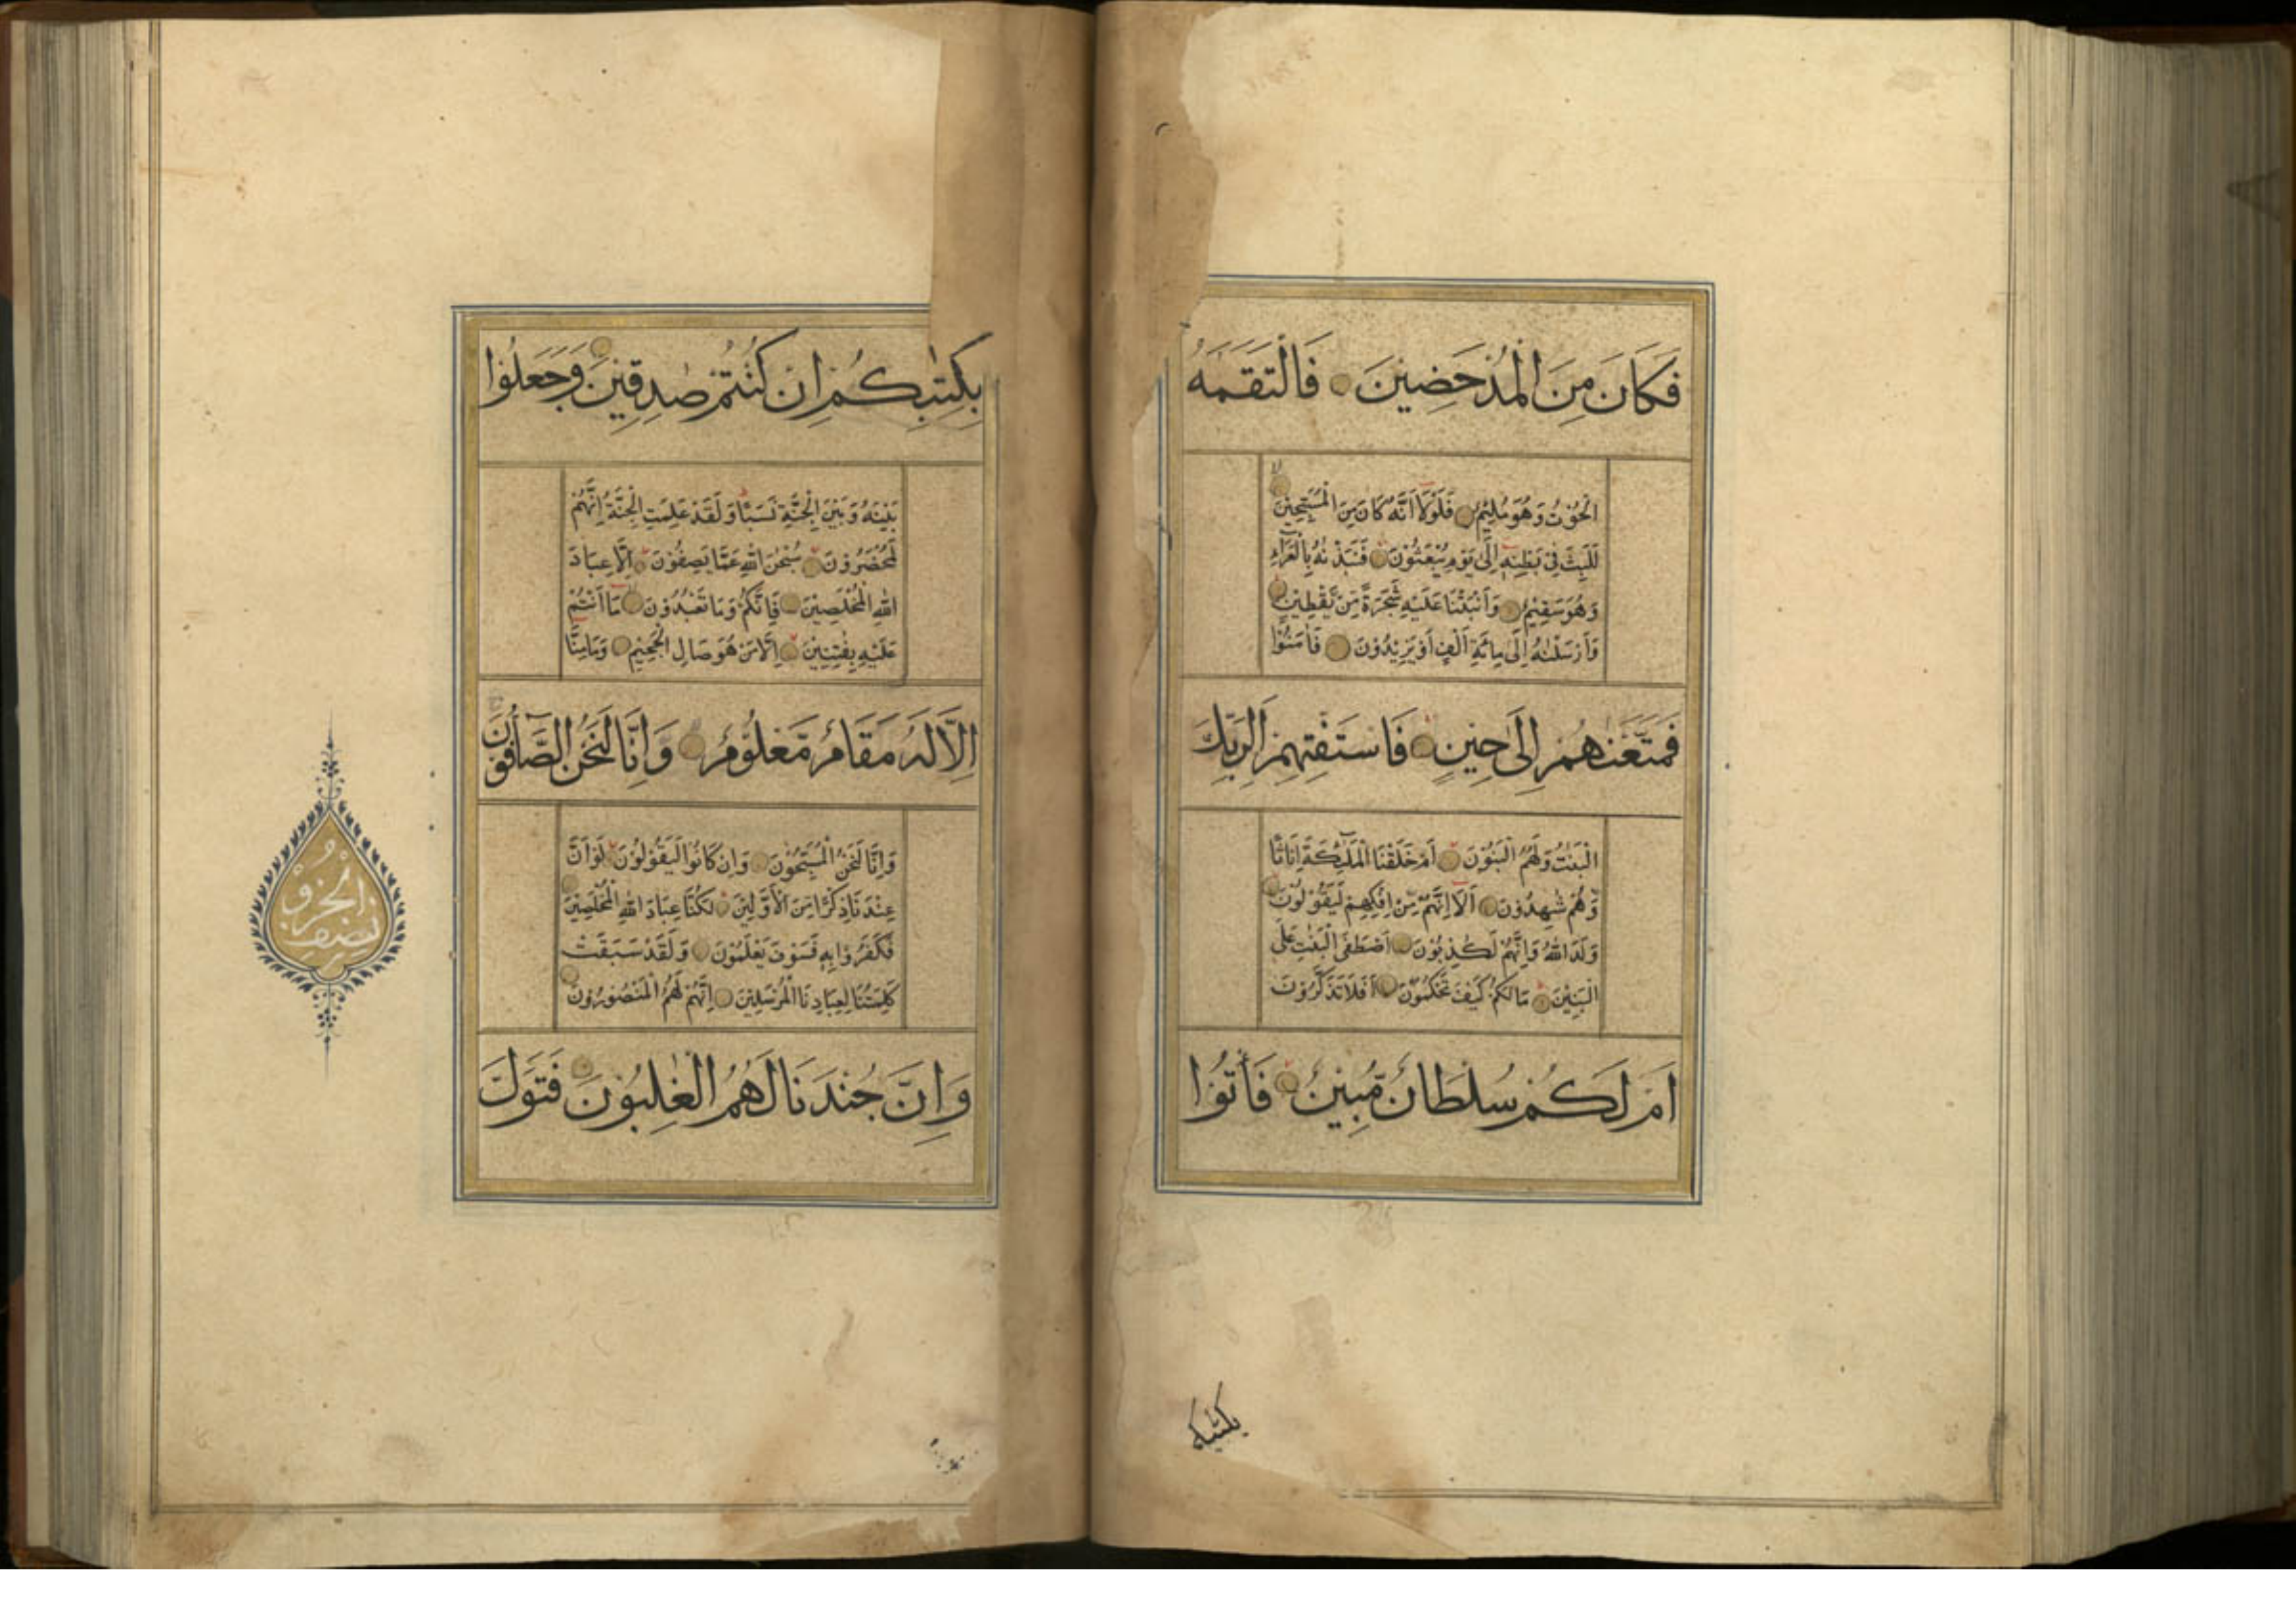 فَكَانَ مِنَ الْمُدْحَضِينَ فَالْتَقَمَهُ
الْحُوْتُ وَهُوَ مُلِيْمٌ فَلَوْلَا اَنَّهُ كَانَ مِنَ الْمُسَبِّحِيْنَ
لَلَبِثَ فِيْ بَطْنِهٖ اِلٰى يَوْمِ يُبْعَثُوْنَ فَنَبَذْنٰهُ بِالْعَرَآءِ
وَهُوَ سَقِيْمٌ وَاَنْبَتْنَا عَلَيْهِ شَجَرَةً مِّنْ يَّقْطِيْنٍ
وَاَرْسَلْنٰهُ اِلٰى مِائَةِ اَلْفٍ اَوْ يَزِيْدُوْنَ فَاٰمَنُوْا
فَمَتَّعْنٰهُمْ اِلٰى حِينٍ فَاسْتَفْتِهِمْ اَلِرَبِّكَ
الْبَنٰتُ وَلَهُمُ الْبَنُوْنَ اَمْ خَلَقْنَا الْمَلٰٓئِكَةَ اِنَاثًا
وَّهُمْ شٰهِدُوْنَ اَلَآ اِنَّهُمْ مِّنْ اِفْكِهِمْ لَيَقُوْلُوْنَ
وَلَدَ اللّٰهُ وَاِنَّهُمْ لَكٰذِبُوْنَ اَصْطَفَى الْبَنٰتِ عَلَى
الْبَنِيْنَ مَا لَكُمْ كَيْفَ تَحْكُمُوْنَ اَفَلَا تَذَكَّرُوْنَ
اَمْ لَكُمْ سُلْطَانٌ مُّبِينٌ فَأْتُوْا
بكتبكم
بِكِتٰبِكُمْ اِنْ كُنْتُمْ صٰدِقِينَ وَجَعَلُوْا
بَيْنَهُ وَبَيْنَ الْجِنَّةِ نَسَبًا وَلَقَدْ عَلِمَتِ الْجِنَّةُ اِنَّهُمْ
لَمُحْضَرُوْنَ سُبْحٰنَ اللّٰهِ عَمَّا يَصِفُوْنَ اِلَّا عِبَادَ
اللّٰهِ الْمُخْلَصِيْنَ فَاِنَّكُمْ وَمَا تَعْبُدُوْنَ مَا اَنْتُمْ
عَلَيْهِ بِفٰتِنِيْنَ اِلَّا مَنْ هُوَ صَالِ الْجَحِيْمِ وَمَا مِنَّا
اِلَّا لَهُ مَقَامٌ مَّعْلُوْمٌ وَاِنَّا لَنَحْنُ الصَّآفُّوْنَ
وَاِنَّا لَنَحْنُ الْمُسَبِّحُوْنَ وَاِنْ كَانُوْا لَيَقُوْلُوْنَ لَوْ اَنَّ
عِنْدَنَا ذِكْرًا مِّنَ الْاَوَّلِيْنَ لَكُنَّا عِبَادَ اللّٰهِ الْمُخْلَصِيْنَ
فَكَفَرُوْا بِهٖ فَسَوْفَ يَعْلَمُوْنَ وَلَقَدْ سَبَقَتْ
كَلِمَتُنَا لِعِبَادِنَا الْمُرْسَلِيْنَ اِنَّهُمْ لَهُمُ الْمَنْصُوْرُوْنَ
وَاِنَّ جُنْدَنَا لَهُمُ الْغٰلِبُوْنَ فَتَوَلَّ
نصف الحزب